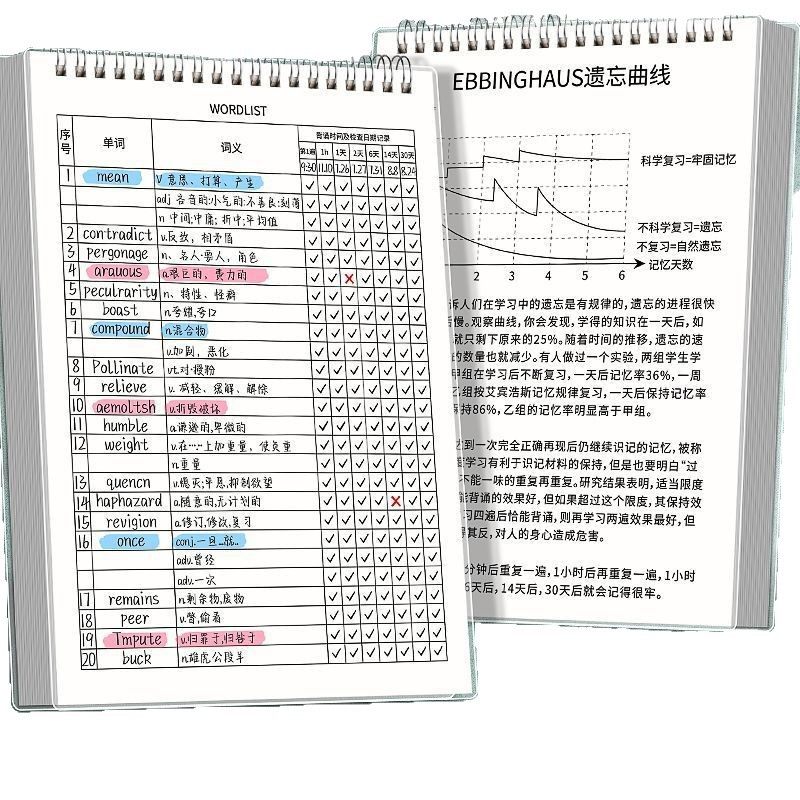 WORDLIST
序号 单词 词义 背诵时间及检查日期记录
第1遍 1h 1天 2天 6天 14天 30天
9:30 11.10 1.26 1.27 1.31 8.8 8.24
1 mean v 意思、打算、产生
adj 吝啬的;小气的;不善良;刻薄
n 中间;中庸;折中;平均值
2 contradict v.反敌,相矛盾
3 pergonage n、名人要人,角色
4 arauous a.艰巨的,费力的
5 peculrarity n、特性、怪癖
6 boast n夸耀,夸口
7 compound n混合物
v.加剧,恶化
8 Pollinate vt.对授粉
9 relieve v.减轻、缓解、解除
10 aemoltsh v.拆毁破坏
11 humble a.谦逊的,卑微的
12 weight v.在……上加重量,使负重
n.重量
13 quencn v.熄灭;平息,抑制欲望
14 haphazard a.随意的,无计划的
15 revigion a.修订,修改,复习
16 once conj.一旦...就..
adv.曾经
adv.一次
17 remains n.剩余物,废物
18 peer v.瞥,偷看
19 Tmpute v.归罪于,归咎于
20 buck n.雄鹿公羖羊
EBBINGHAUS遗忘曲线
科学复习=牢固记忆
不科学复习=遗忘
不复习=自然遗忘
记忆天数
2 3 4 5 6
诉人们在学习中的遗忘是有规律的,遗忘的进程很快
慢。观察曲线,你会发现,学得的知识在一天后,如
就只剩下原来的25%。随着时间的推移,遗忘的速
的数量也就减少。有人做过一个实验,两组学生学
甲组在学习后不断复习,一天后记忆率36%,一周
乙组按艾宾浩斯记忆规律复习,一天后保持记忆率
持86%,乙组的记忆率明显高于甲组。
到一次完全正确再现后仍继续识记的记忆,被称
学习有利于识记材料的保持,但是也要明白“过
不能一味的重复再重复。研究结果表明,适当限度
能背诵的效果好,但如果超过这个限度,其保持效
习四遍后恰能背诵,则再学习两遍效果最好,但
得其反,对人的身心造成危害。
分钟后重复一遍,1小时后再重复一遍,1小时
6天后,14天后,30天后就会记得很牢。